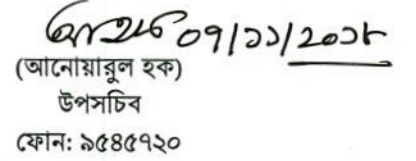 ০৭/১১/২০১৮
(আনোয়ারুল হক)
উপসচিব
ফোন: ৯৫৪৫৭২০